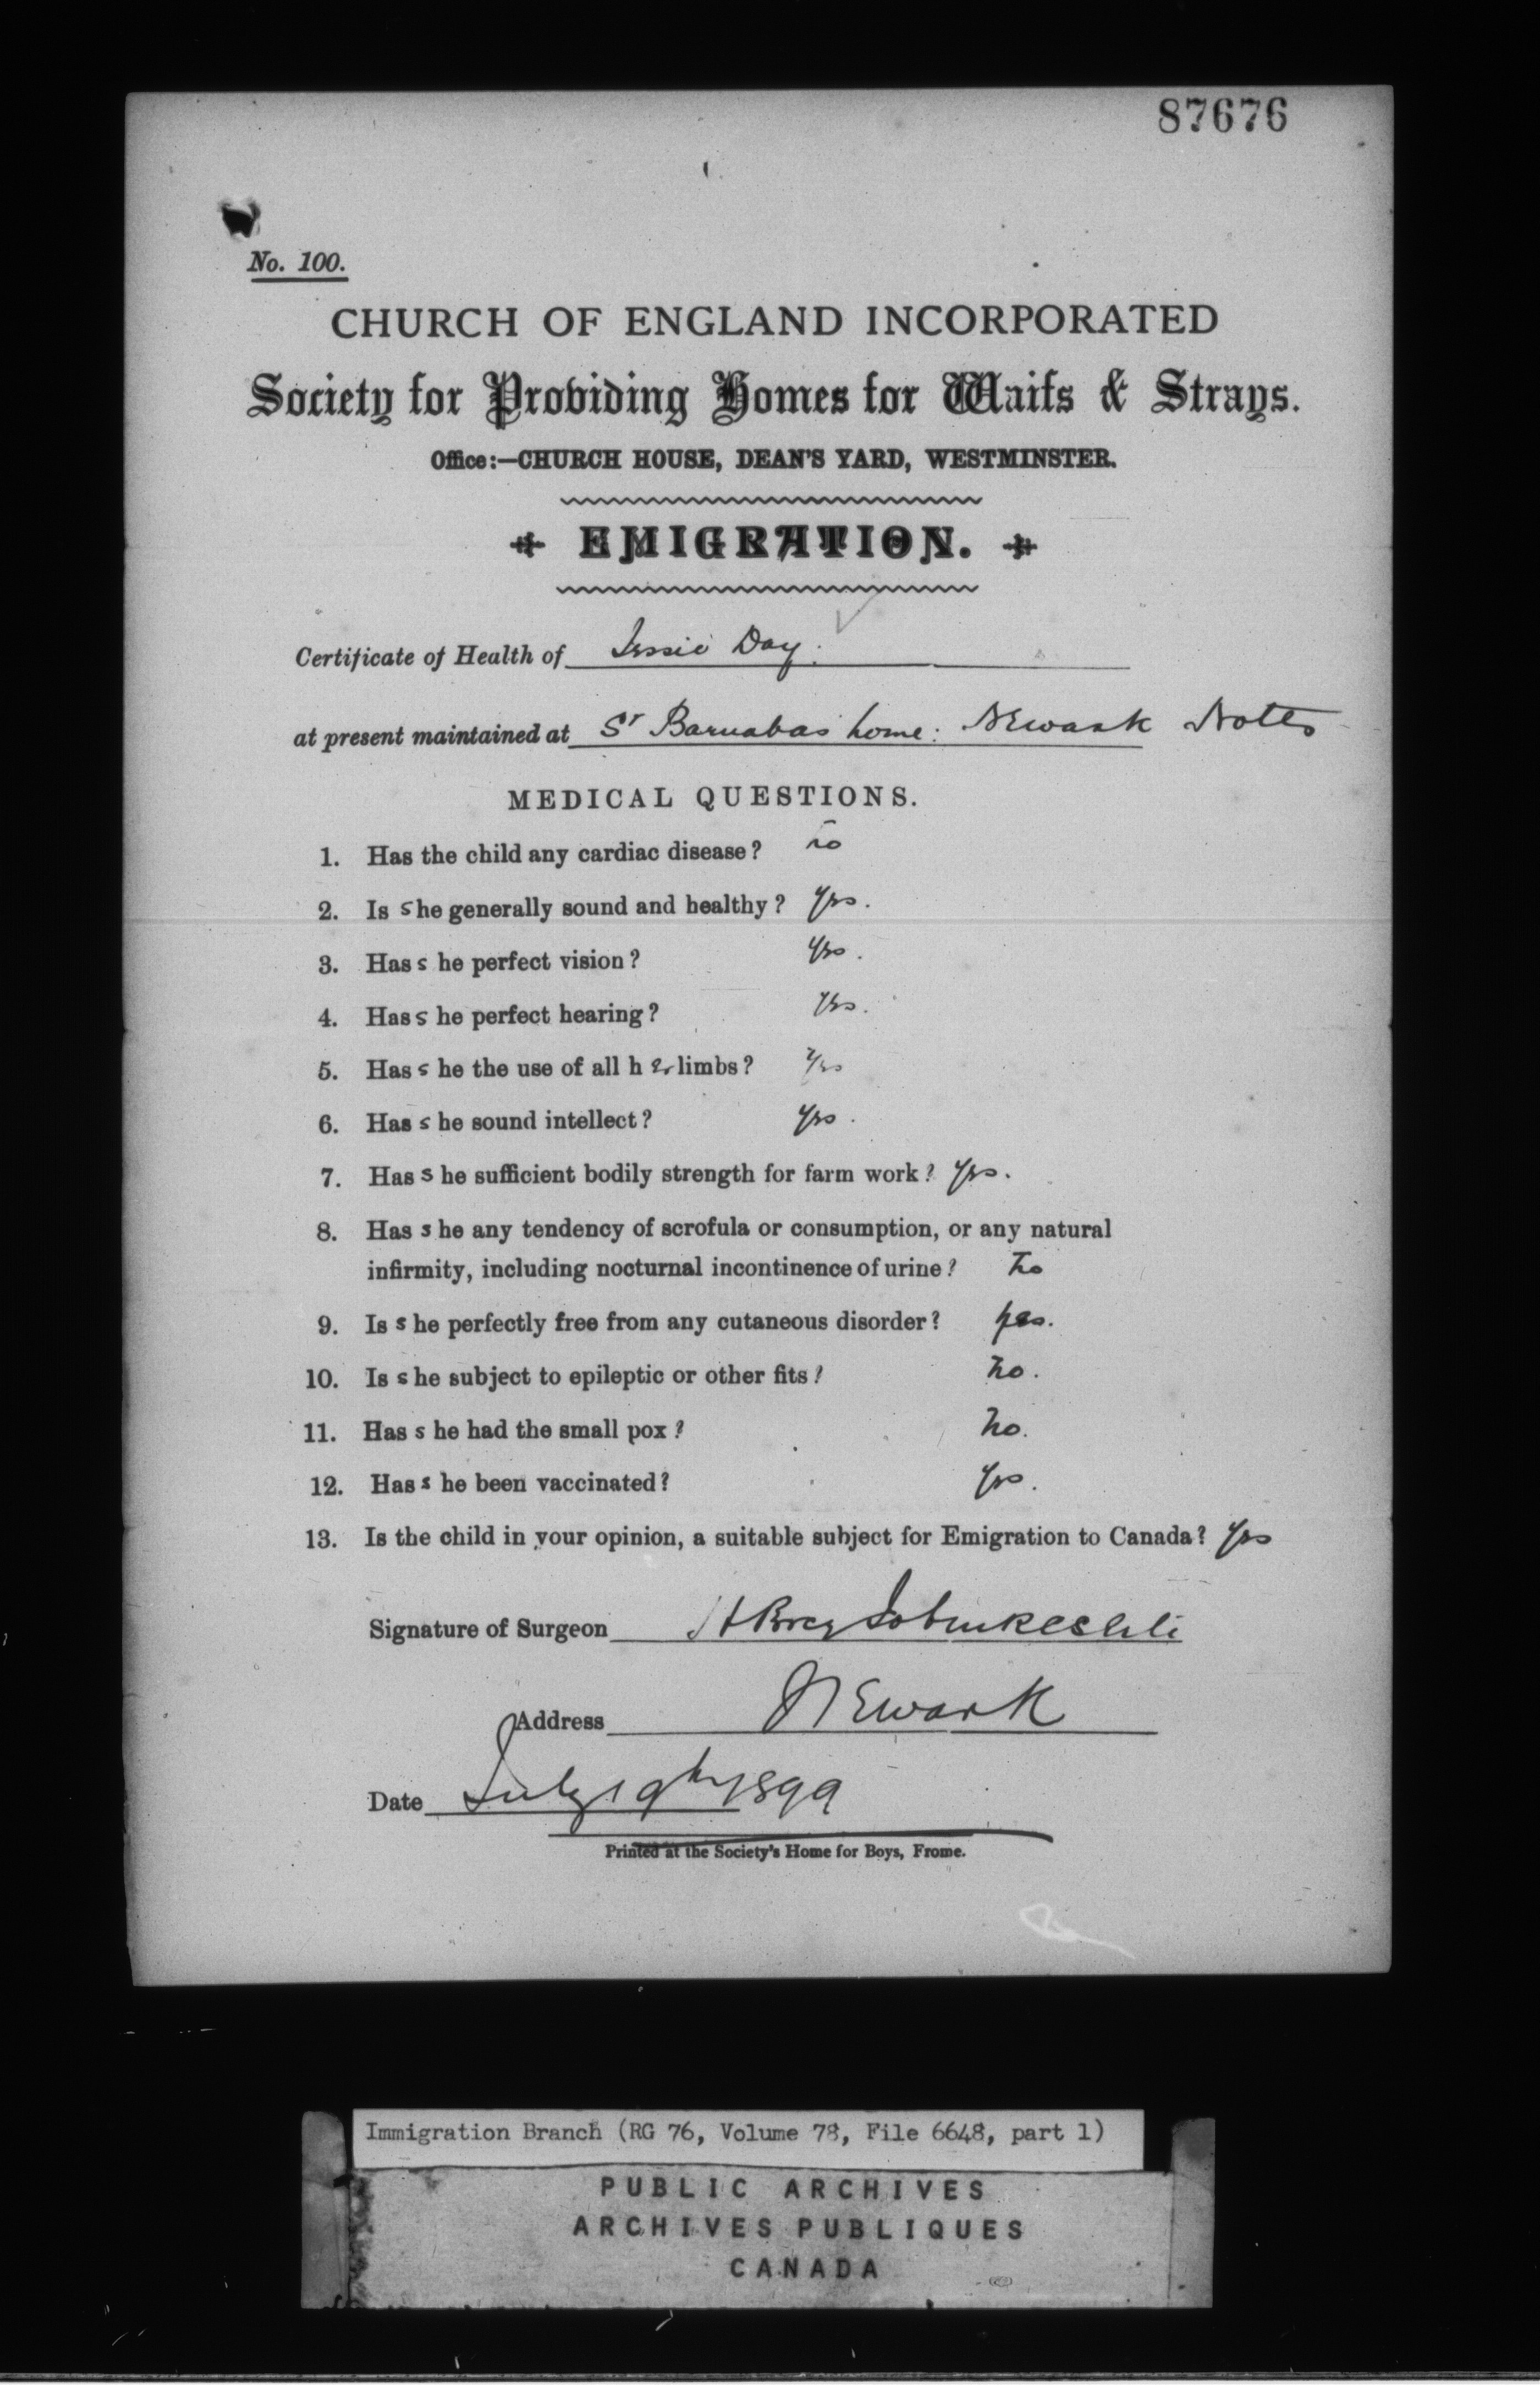 87676
No. 100.
CHURCH OF ENGLAND INCORPORATED
Society for Providing Homes for Waifs & Strays.
Office:—CHURCH HOUSE, DEAN'S YARD, WESTMINSTER.
EMIGRATION.
Certificate of Health of Jessie Day.
at present maintained at St Barnabas home: Newark Notts
MEDICAL QUESTIONS.
1. Has the child any cardiac disease? no
2. Is she generally sound and healthy? Yes.
3. Has she perfect vision? Yes.
4. Has she perfect hearing? Yes.
5. Has she the use of all her limbs? Yes
6. Has she sound intellect? Yes.
7. Has she sufficient bodily strength for farm work? Yes.
8. Has she any tendency of scrofula or consumption, or any natural
infirmity, including nocturnal incontinence of urine? no
9. Is she perfectly free from any cutaneous disorder? yes.
10. Is she subject to epileptic or other fits? no.
11. Has she had the small pox? no.
12. Has she been vaccinated? Yes.
13. Is the child in your opinion, a suitable subject for Emigration to Canada? Yes
Signature of Surgeon
Address Newark
Date July 19th 1899
Printed at the Society's Home for Boys, Frome.
Immigration Branch (RG 76, Volume 78, File 6648, part 1)
PUBLIC ARCHIVES
ARCHIVES PUBLIQUES
CANADA